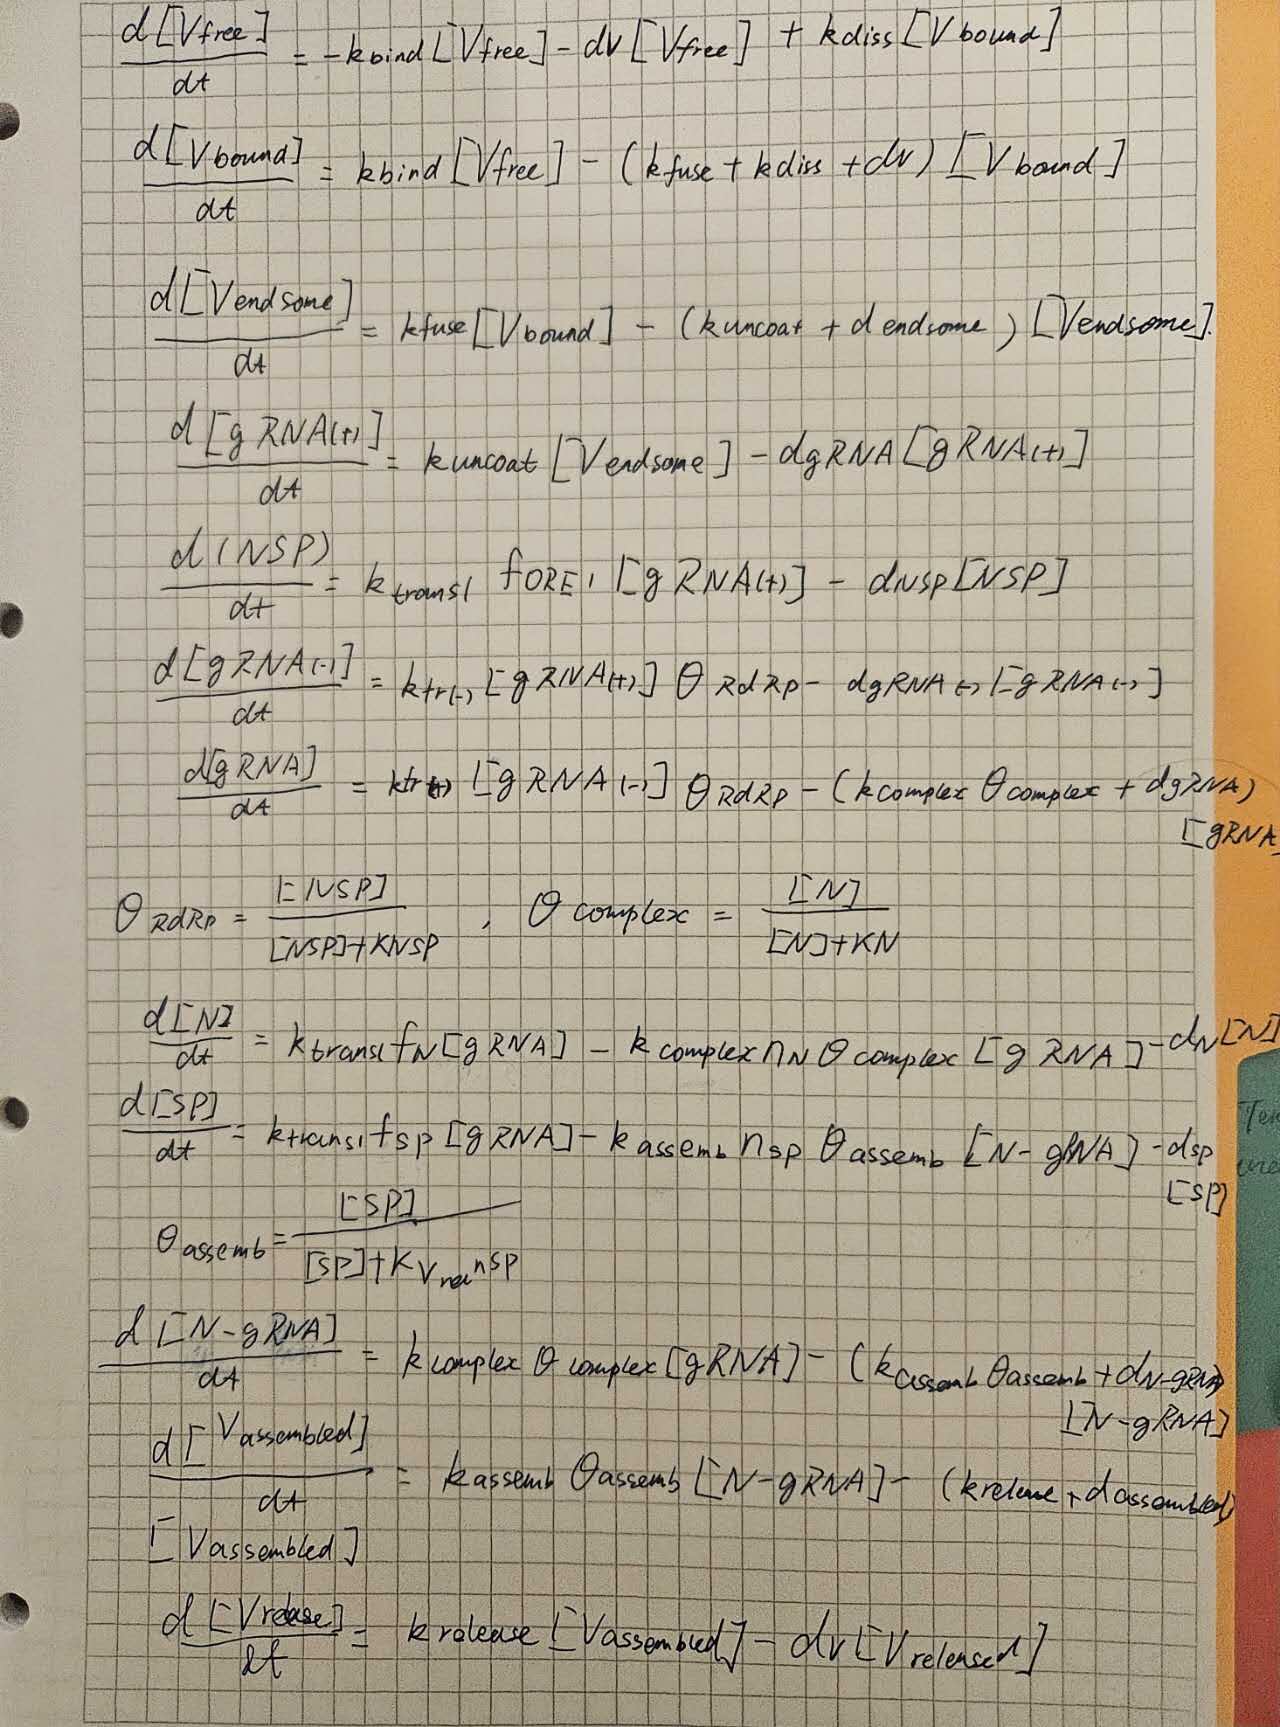 d[Vfree]/dt = -kbind[Vfree] - dv[Vfree] + kdiss[Vbound]
d[Vbound]/dt = kbind[Vfree] - (kfuse + kdiss + dv)[Vbound]
d[Vendsome]/dt = kfuse[Vbound] - (kuncoat + dendsome)[Vendsome].
d[gRNA(+)]/dt = kuncoat[Vendsome] - dgRNA[gRNA(+)]
d(NSP)/dt = ktransl fORF1[gRNA(+)] - dNSP[NSP]
d[gRNA(-)]/dt = ktr(-)[gRNA(+)] θRdRp - dgRNA(-)[gRNA(-)]
d[gRNA]/dt = ktr(+)[gRNA(-)] θRdRp - (kcomplex θcomplex + dgRNA)
[gRNA]
θRdRp = [NSP]/[NSP]+KNSP , θcomplex = [N]/[N]+KN
d[N]/dt = ktransl fN[gRNA] - kcomplex nN θcomplex[gRNA] - dN[N]
d[SP]/dt = ktransl fsp[gRNA] - kassemb nsp θassemb[N-gRNA] - dsp
[SP]
θassemb = [SP]/[SP]+KVrel nsp
d[N-gRNA]/dt = kcomplex θcomplex[gRNA] - (kassemb θassemb + dN-gRNA)
[N-gRNA]
d[Vassembled]/dt = kassemb θassemb[N-gRNA] - (krelease + dassembled)
[Vassembled]
d[Vrelease]/dt = krelease[Vassembled] - dv[Vreleased]